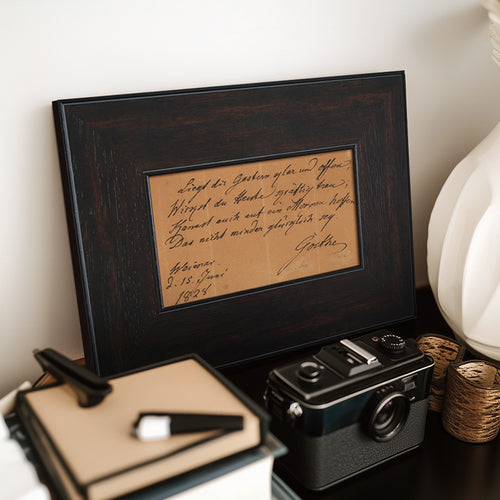 Liegt dir Gestern klar und offen,
Wirkst du Heute kräftig frey,
Kannst auch auf ein Morgen hoffen
Das nicht minder glücklich sey.
Goethe
Weimar
d. 15. Juni
1828